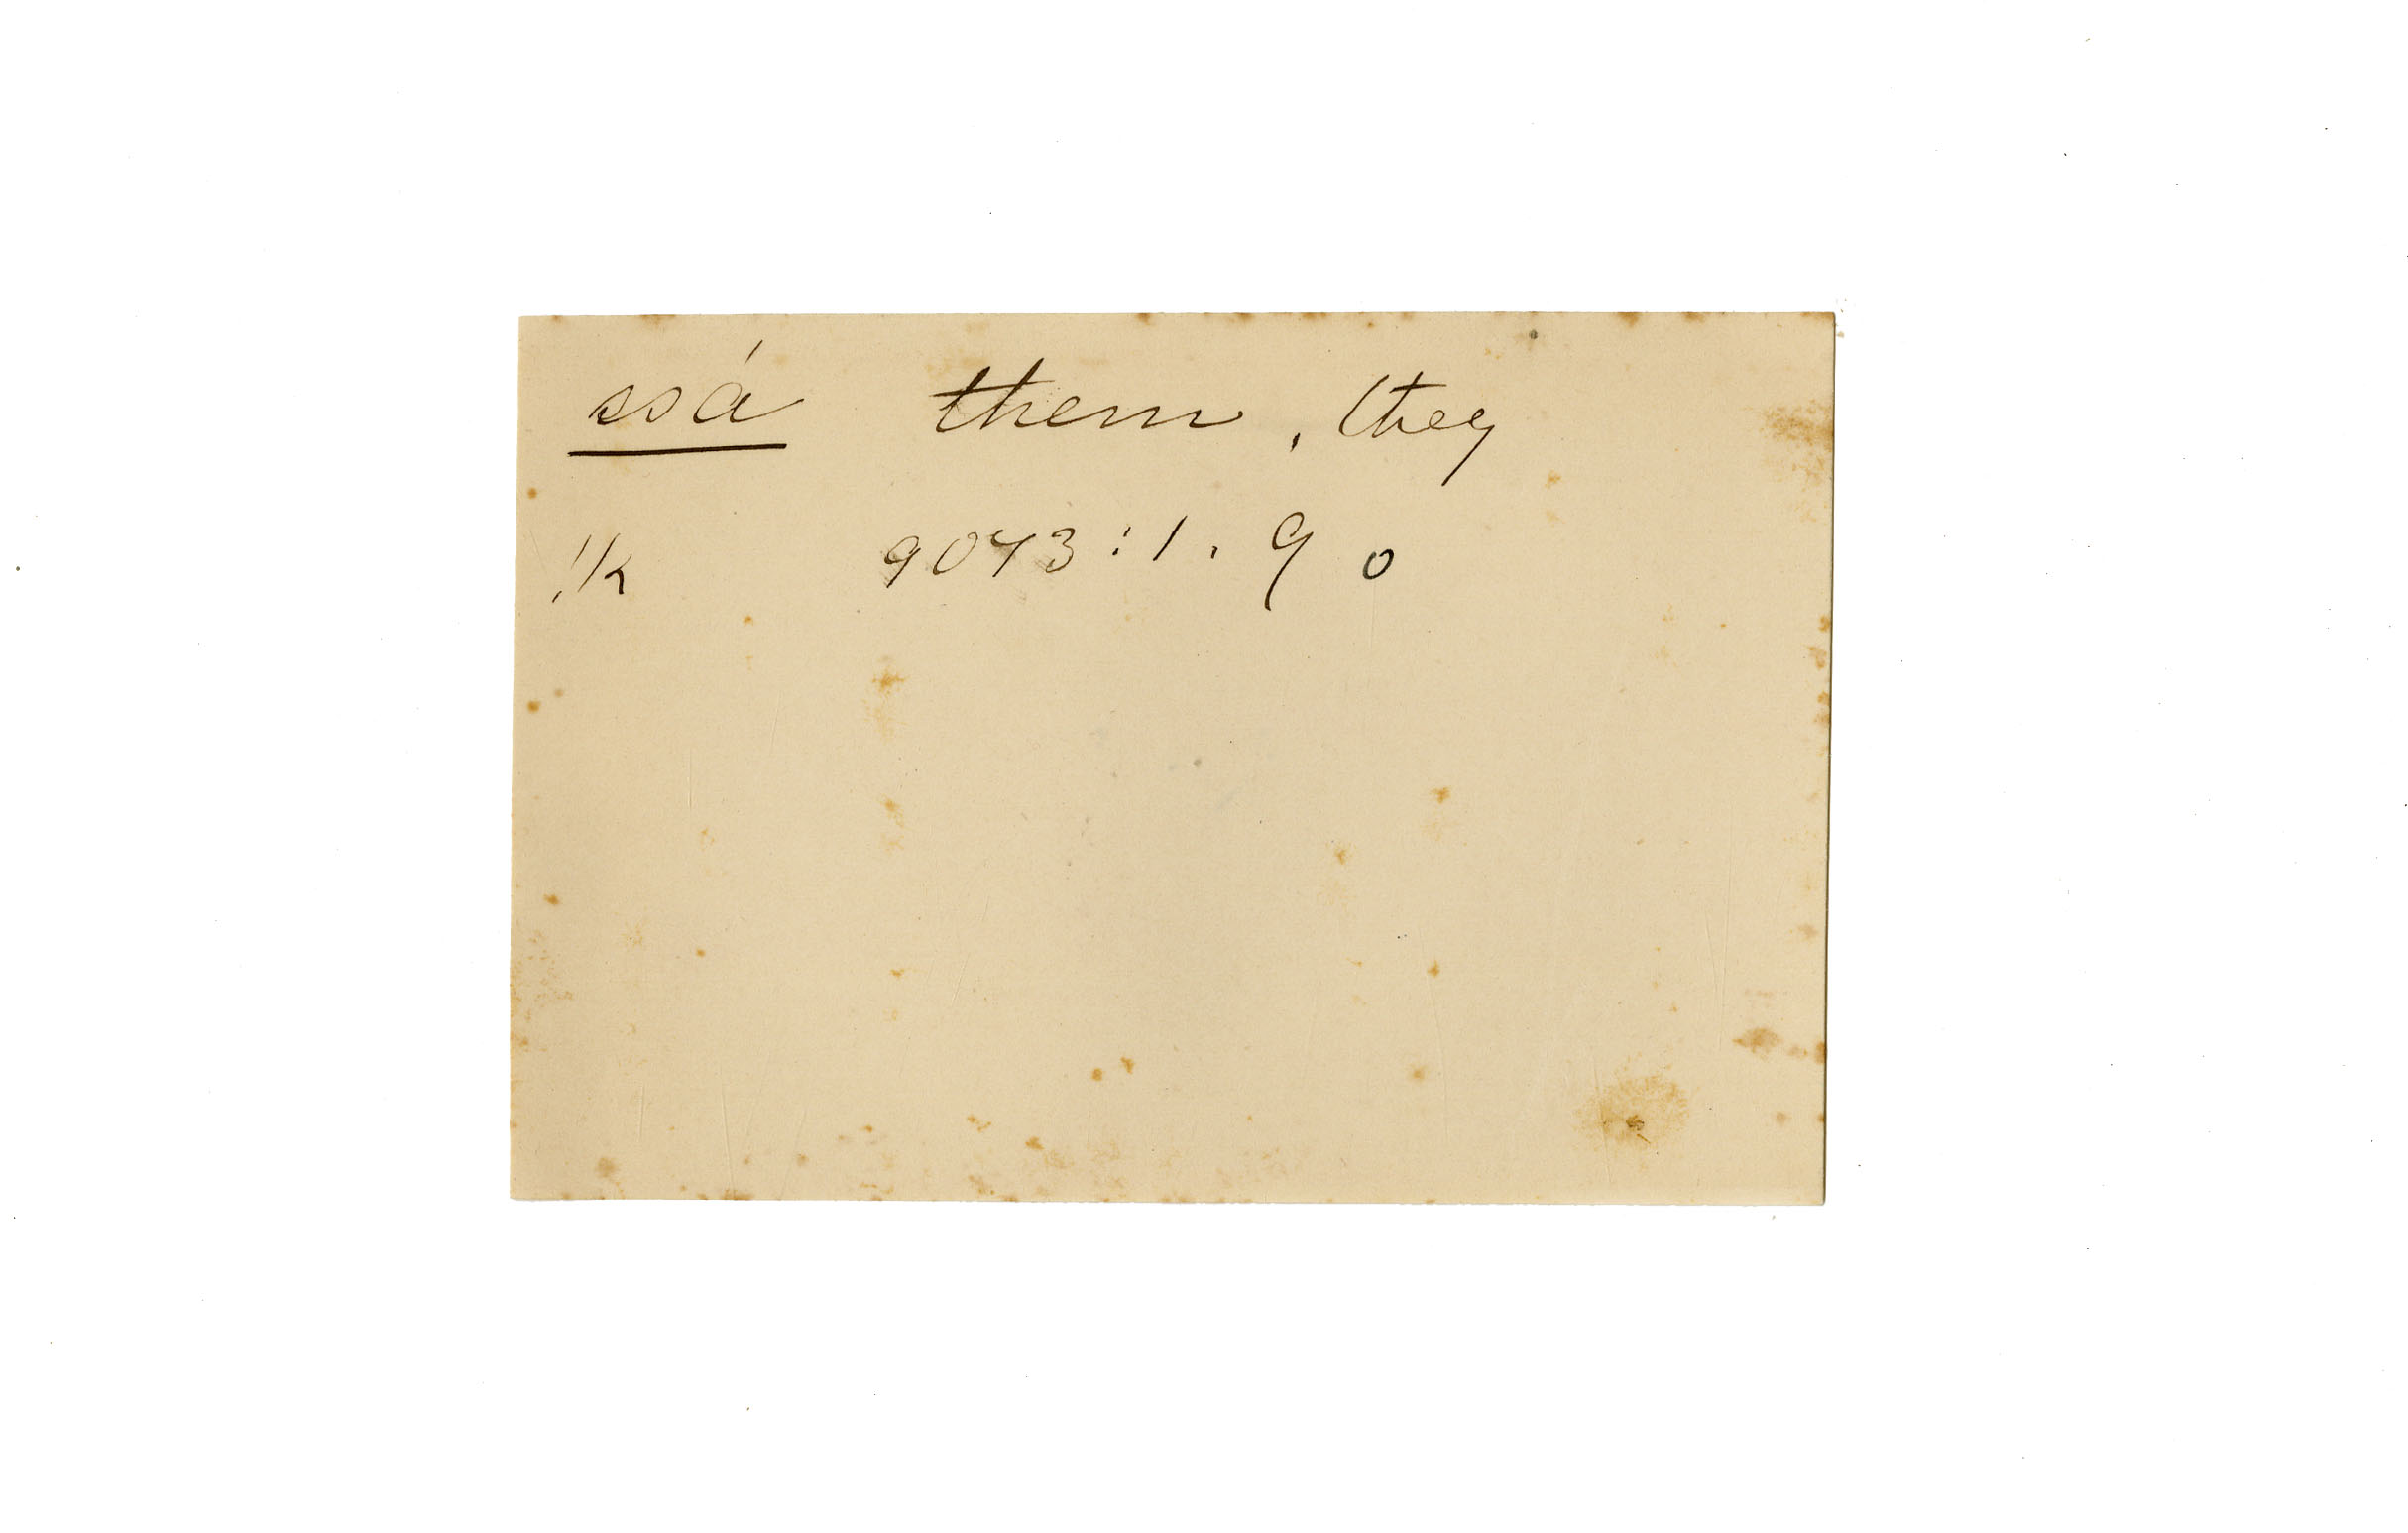 ssá them, they
!k 9073:1. 9 0